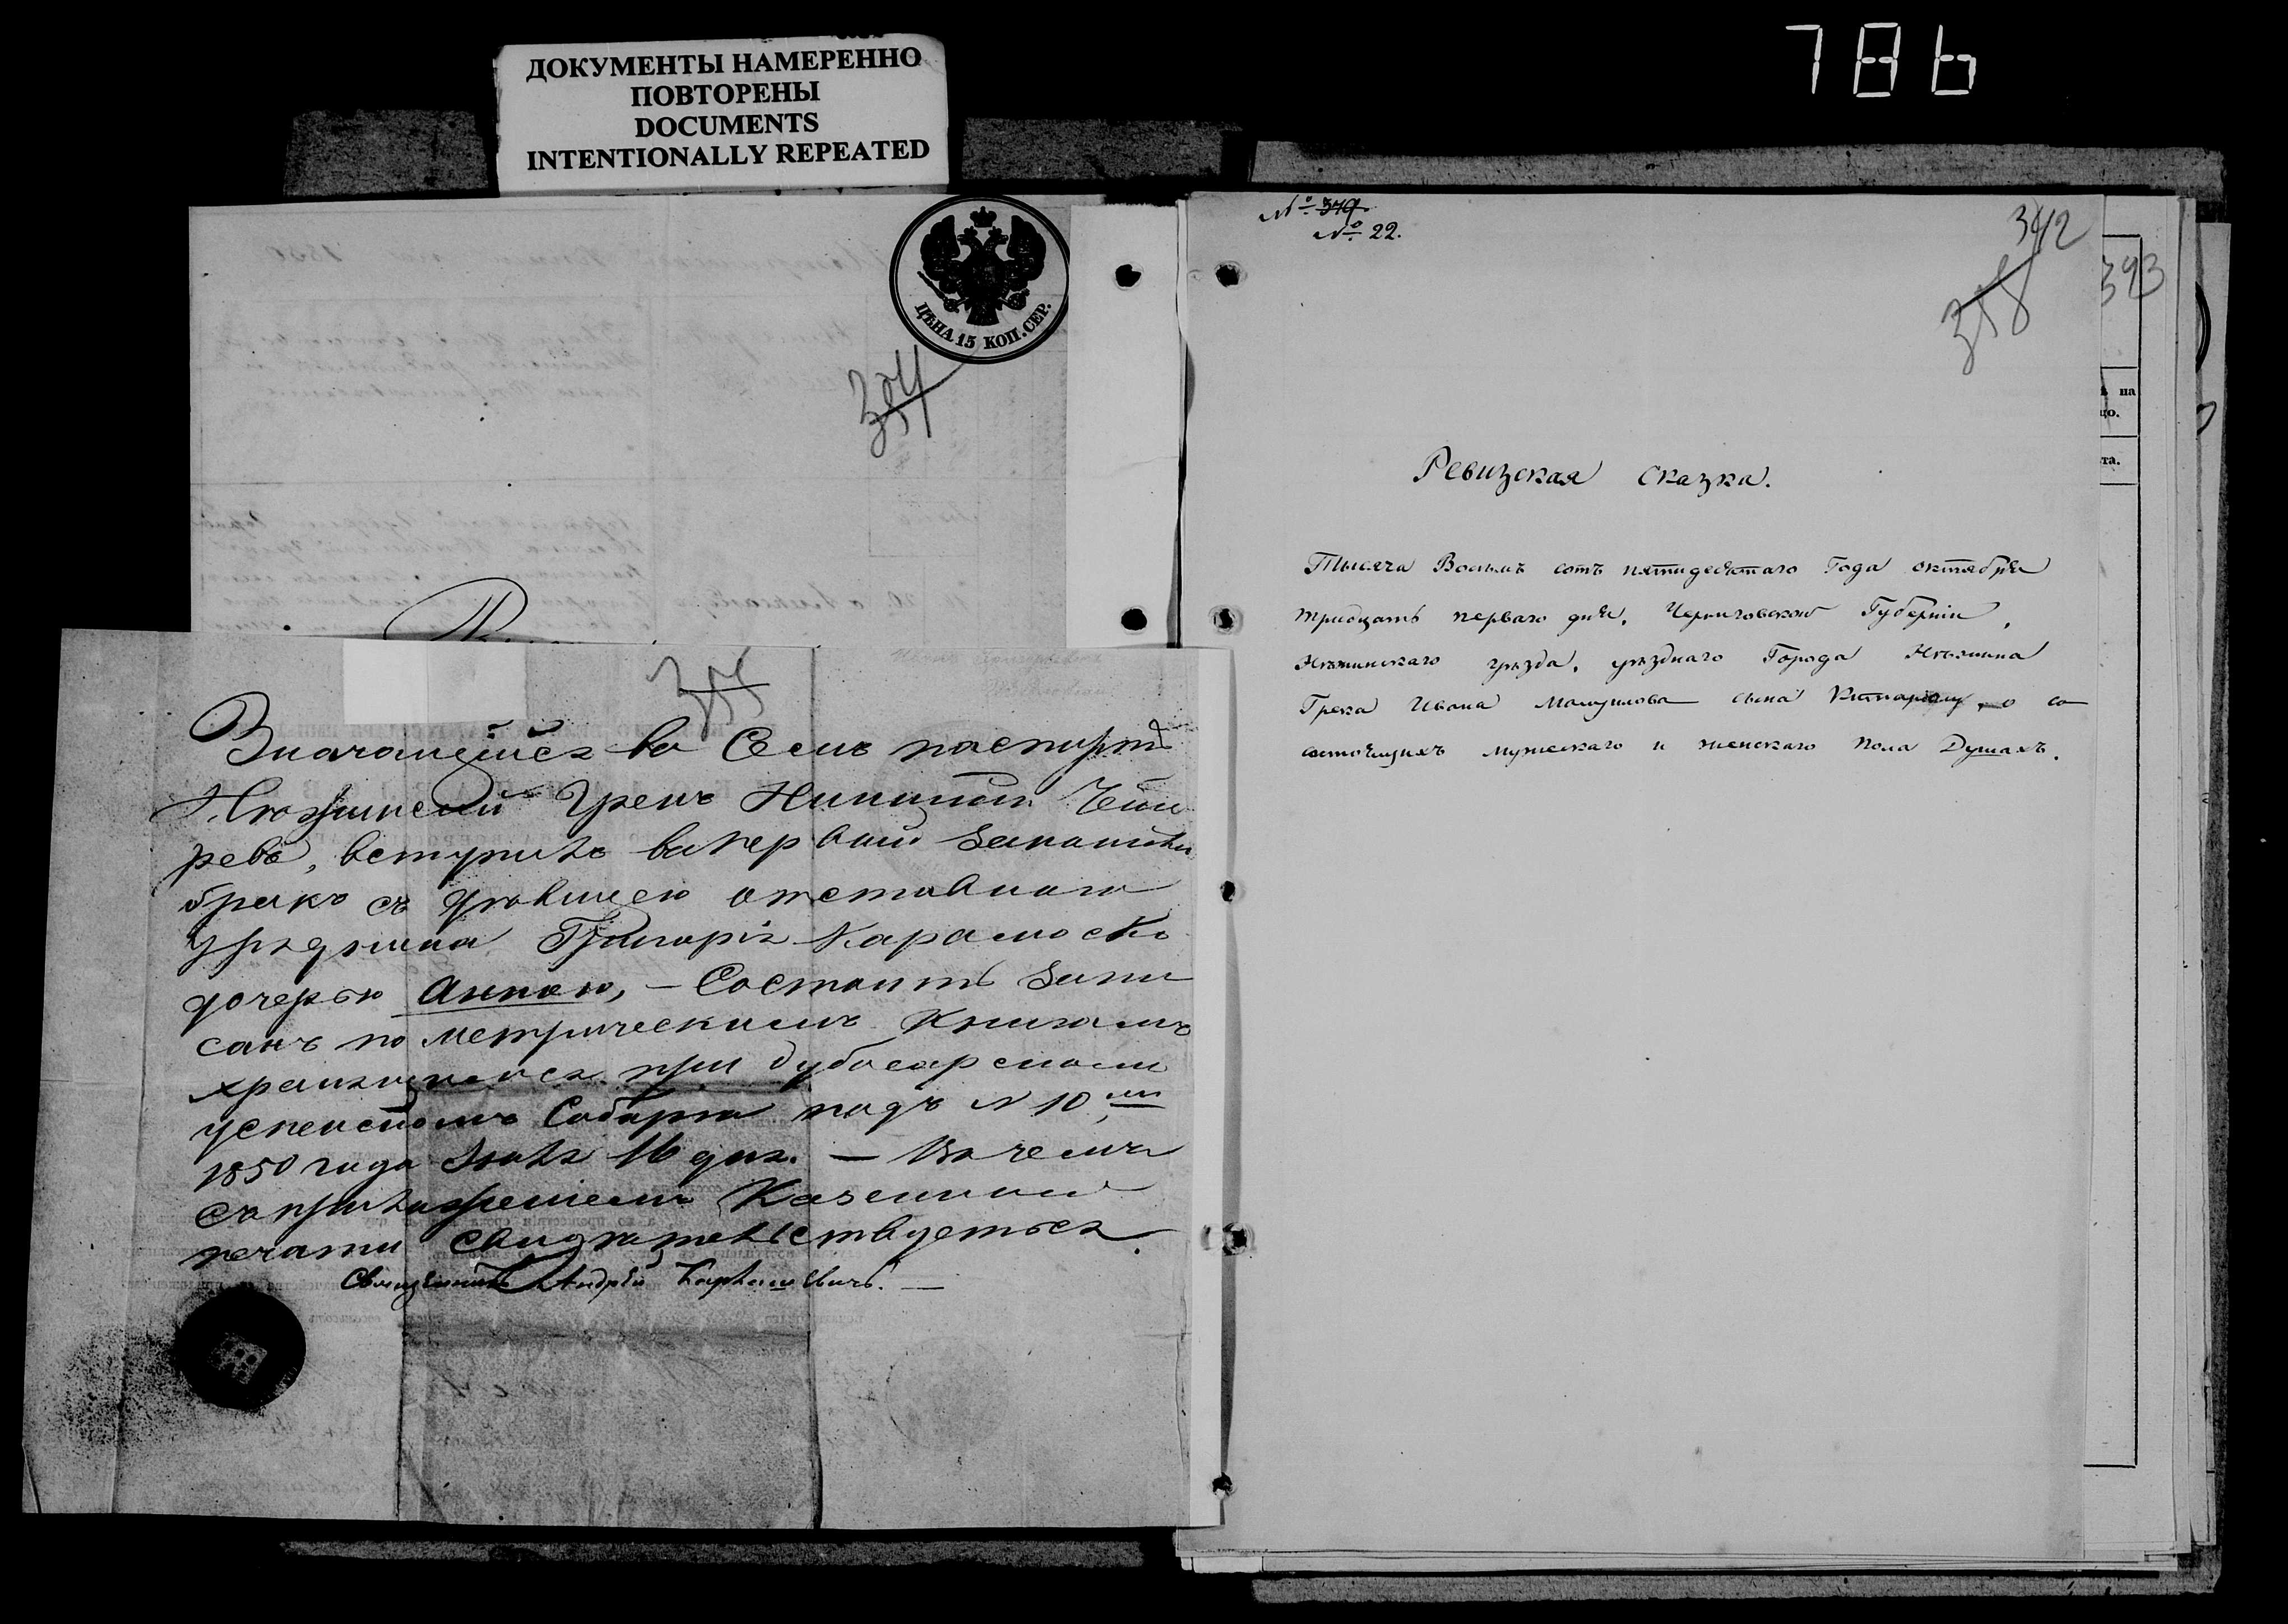 ДОКУМЕНТЫ НАМЕРЕННО
ПОВТОРЕНЫ
DOCUMENTS
INTENTIONALLY REPEATED
786
ЦѢНА 15 КОП. СЕР.
354
355
Значащійся въ Семъ паспортѣ
Нѣжинский Грекъ
ревъ, вступилъ въ первый законный
бракъ съ дѣвицею отставнаго
урядника Григорія
дочерью Анною, — Состоитъ запи
санъ по метрическимъ Книгамъ
хранящимся при дубосарскомъ
успенскомъ Соборѣ подъ N 10мъ
1850 года Іюля 16 дня. — Въ чемъ
съ приложеніемъ Казенной
печати свидѣтельствуется.
Священникъ Андрей
№ 379.
№ 22.
342
358
393
на
та.
Ревизская сказка.
Тысяча Восемь сотъ пятидесятаго Года октября
тридцать перваго дня, Черниговской Губерніи,
Нѣжинскаго уѣзда, уѣзднаго Города Нѣжина
Грека Ивана Мануилова сына о со
состоящихъ мужескаго и женскаго пола Душахъ.